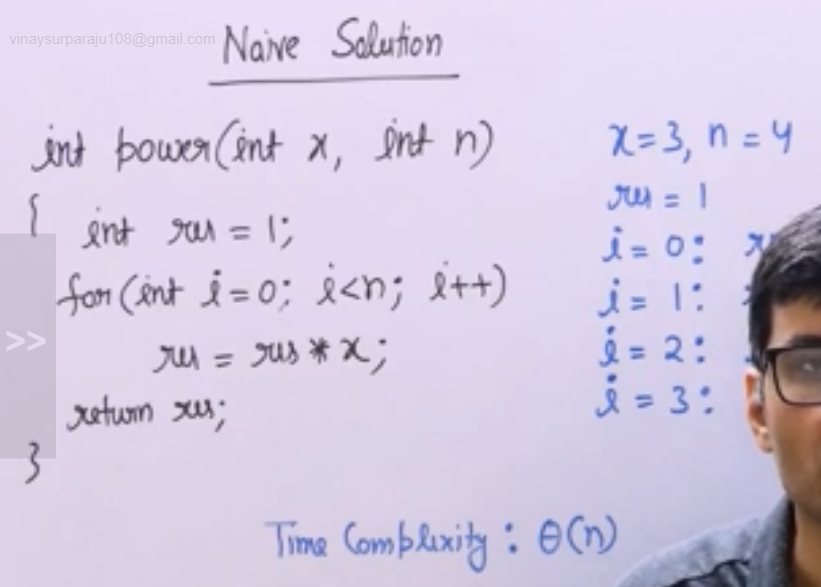 vinaysurparaju108@gmail.com
Naive Solution
int power(int x, int n)
{ int res = 1;
for(int i=0; i<n; i++)
res = res * x;
return res;
}
x=3, n = 4
res = 1
i = 0:
i = 1:
i = 2:
i = 3:
Time Complexity : θ(n)
>>